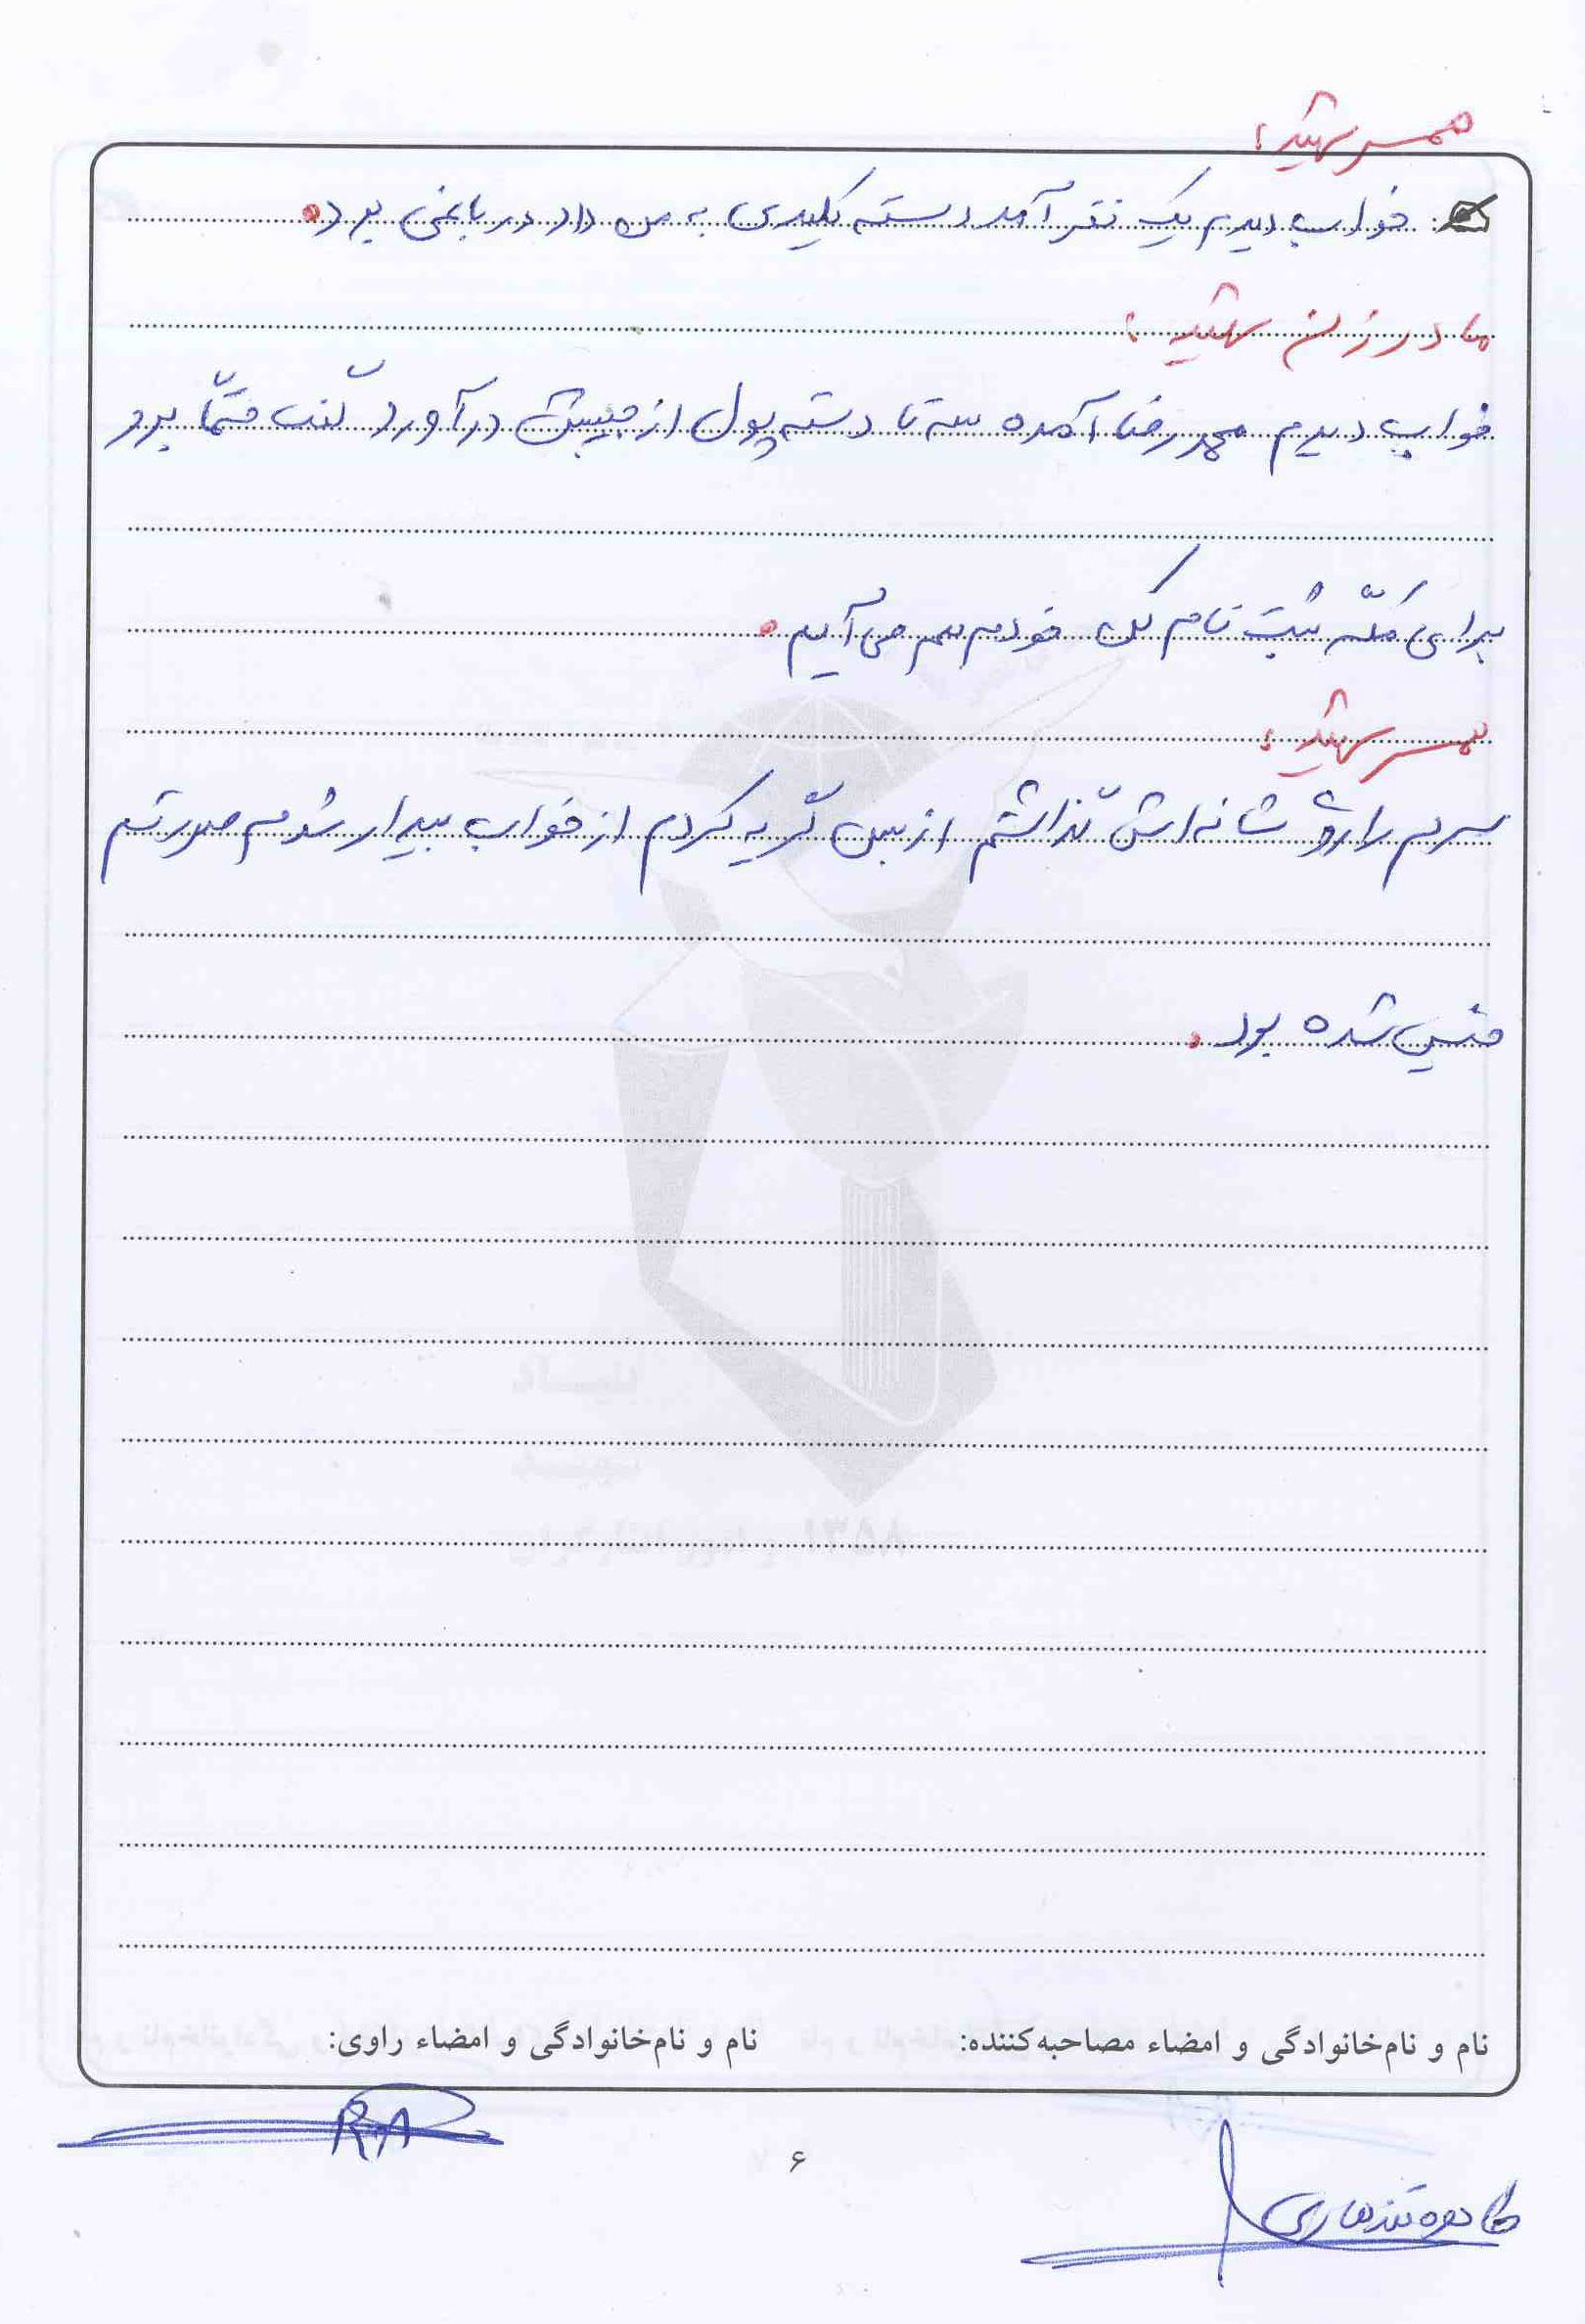 همسر شهید:
خواب دیدم یک نفر آمد دسته کلیدی به من داد در باغی بود.
مادر زن شهید:
خواب دیدم محمدرضا آمده سه تا دسته پول از جیبش درآورد گفت حتماً برو
برای مکّه ثبت نام کن خودم هم می‌آیم.
همسر شهید:
سرم را روی شانه‌اش گذاشتم از بس گریه کردم از خواب بیدار شدم صورتم
خیس شده بود.
نام و نام‌خانوادگی و امضاء مصاحبه‌کننده: نام و نام‌خانوادگی و امضاء راوی:
R.A
۶